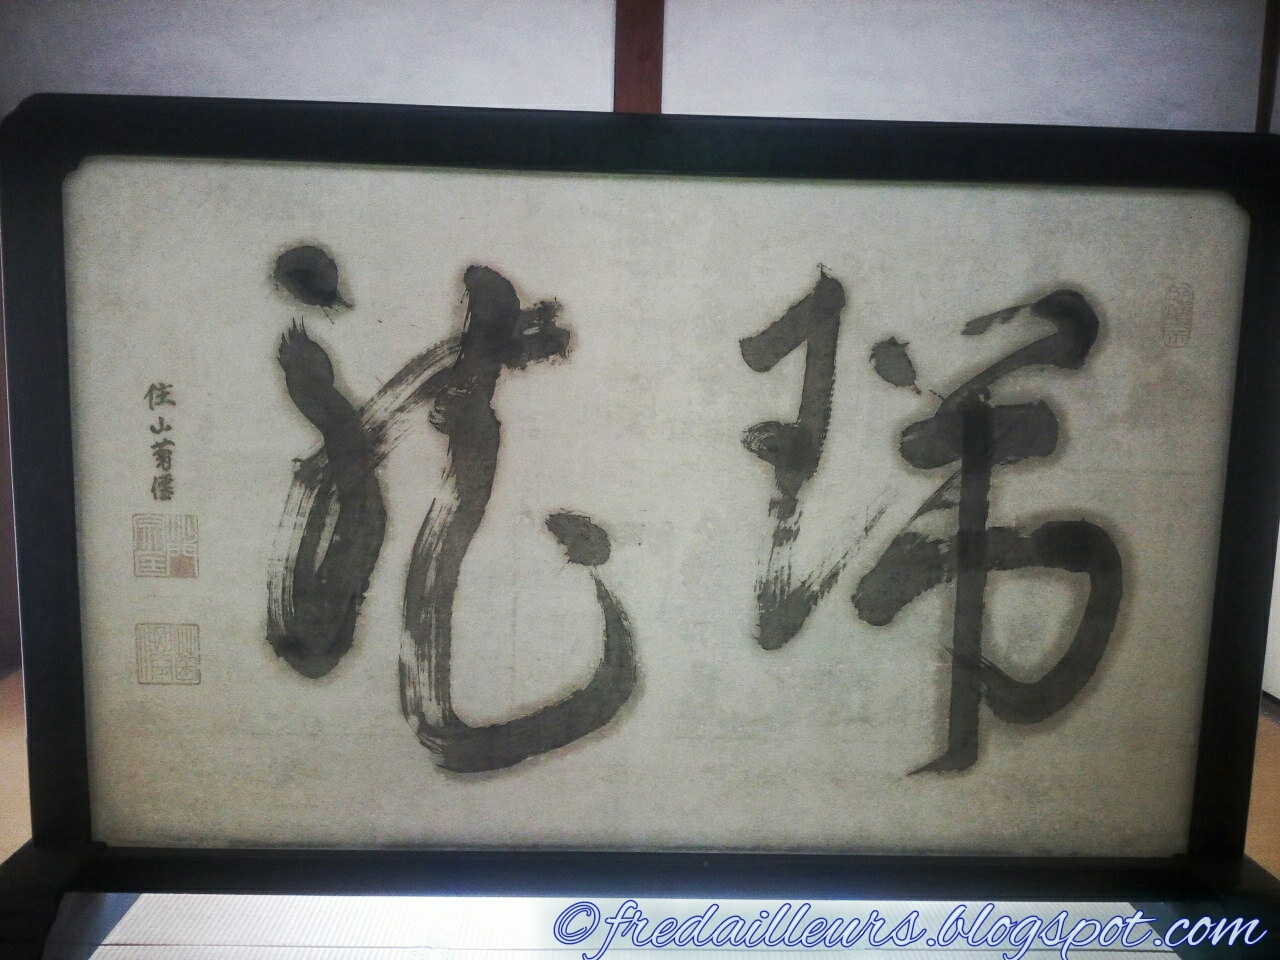 瑞龍
住山菊僊
©fredailleurs.blogspot.com